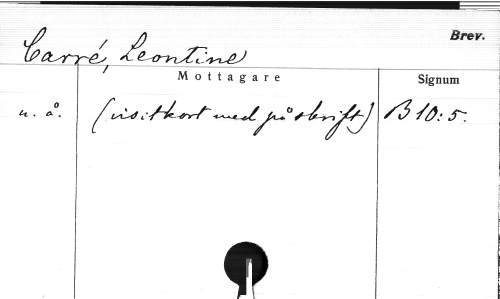 Brev.
Carré, Leontine
Mottagare Signum
u. å. (visitkort med påskrift) B 10:5.